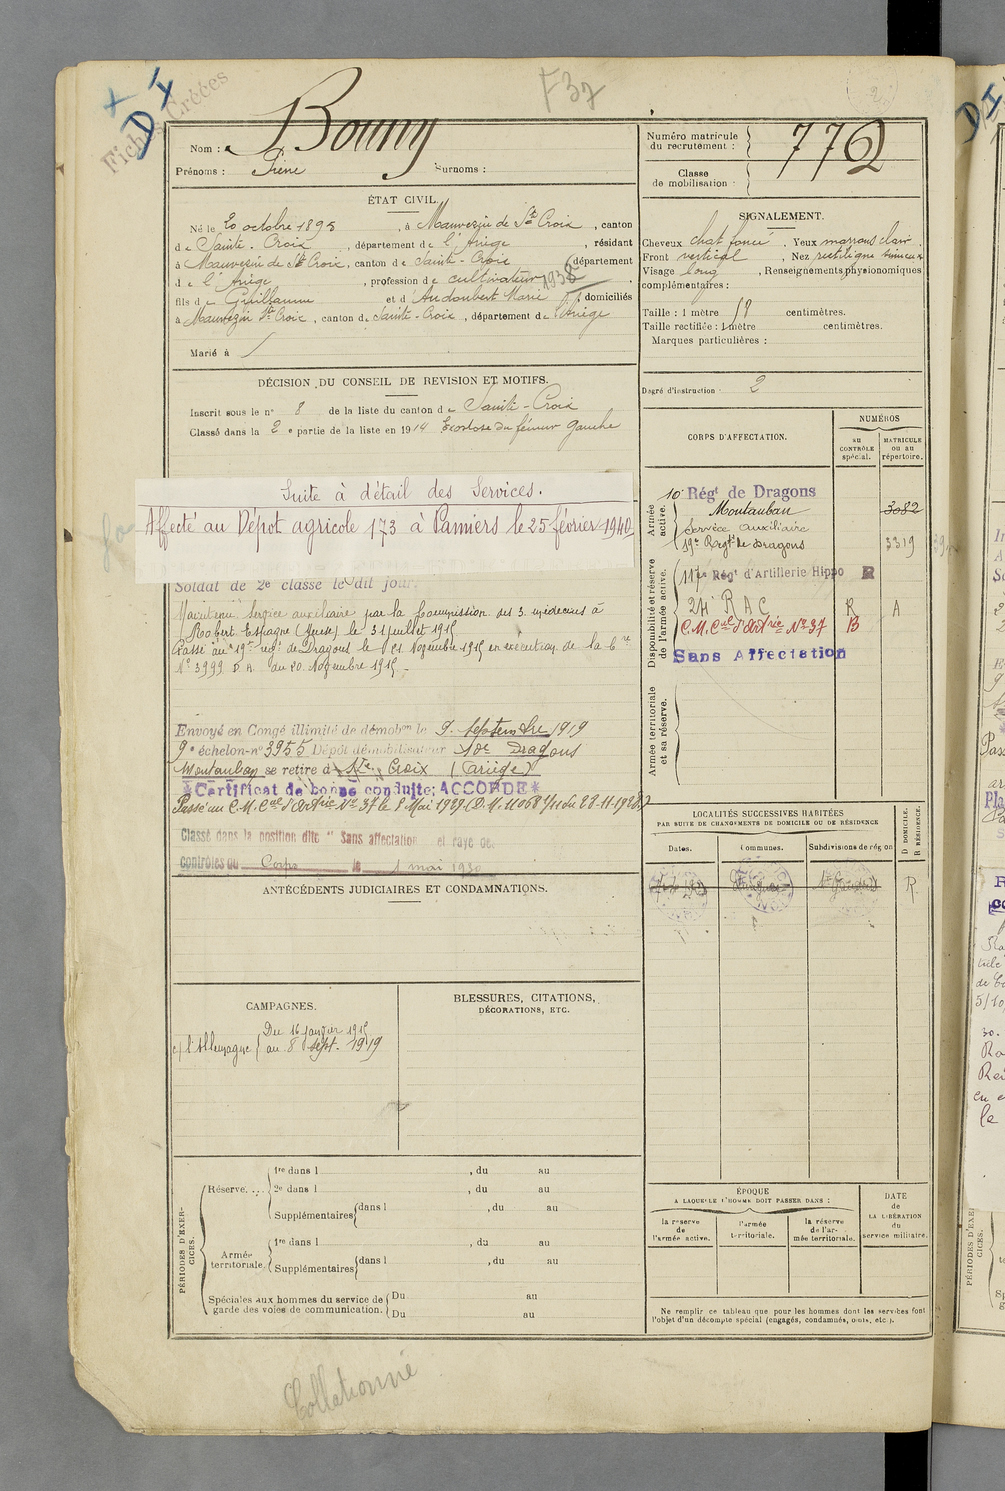 D I
Fiches Créées
F 37
Nom : Bouny
Prénoms : Irène Surnoms :
Numéro matricule du recrutement : 772
Classe de mobilisation :
ÉTAT CIVIL.
Né le 20 octobre 1895, à Mauvezin de Ste Croix, canton
de Sainte-Croix, département de l'Ariège, résidant
à Mauvezin de Ste Croix, canton de Sainte-Croix, département
d e l'Ariège, profession de cultivateur 1938
fils de Guillaume et d'Audoubert Marie, domiciliés
à Mauvezin Ste Croix, canton de Sainte-Croix, département de l'Ariège
Marié à
SIGNALEMENT.
Cheveux chat foncé. Yeux marrons clair.
Front vertical, Nez rectiligne
Visage long, Renseignements physionomiques
complémentaires :
Taille : 1 mètre 59 centimètres.
Taille rectifiée : 1 mètre centimètres.
Marques particulières :
Degré d'instruction : 2
DÉCISION DU CONSEIL DE REVISION ET MOTIFS.
Inscrit sous le n° 8 de la liste du canton de Sainte-Croix
Classé dans la 2e partie de la liste en 1914 Exostose du fémur gauche
Suite à détail des Services.
Affecté au Dépot agricole 173 à Pamiers le 25 février 1940
Soldat de 2e classe le dit jour.
Maintenu service auxiliaire par la Commission des 3 médecins à
Robert Espagne (Meuse) le 31 juillet 1915
Passé au 19e régt de Dragons le 21 Novembre 1915 en exécution de la C re
N° 3999 D A. du 20 Novembre 1915.
Envoyé en Congé illimité de démobon le 9 septembre 1919
9e échelon n° 3955 Dépôt démobilisateur 10e Dragons
Montauban se retire à Ste Croix (Ariège)
*Certificat de bonne conduite: ACCORDÉ*
Passé au C.M. Cal d'Artrie No 37 le 1 Mai 1929 (D.M. 11068 1/11 du 28-11-1928)
Classé dans la position dite "Sans affectation et rayé des
contrôles du Corps le 1 mai 1930
CORPS D'AFFECTATION.
NUMÉROS
AU CONTRÔLE spécial.
MATRICULE OU AU répertoire.
Armée active.
10e Régt de Dragons
Montauban 3082
Service auxiliaire
19e Régt de Dragons 3319
Disponibilité et réserve de l'armée active.
117e Régt d'Artillerie Hippo R
24 R A C R A
C.M. Cal d'Artrie No 37 B
Sans Affectation
Armée territoriale et sa réserve.
LOCALITÉS SUCCESSIVES HABITÉES
PAR SUITE DE CHANGEMENTS DE DOMICILE OU DE RÉSIDENCE
Dates. Communes. Subdivisions de région
D DOMICILE. R RÉSIDENCE.
R
ANTÉCÉDENTS JUDICIAIRES ET CONDAMNATIONS.
CAMPAGNES.
c/ l'Allemagne { Du 16 janvier 1915
au 8 sept. 1919
BLESSURES, CITATIONS,
DÉCORATIONS, ETC.
PÉRIODES D'EXERCICES.
Réserve.... 1re dans l , du au
2e dans l , du au
Supplémentaires dans l , du au
Armée territoriale. 1re dans l , du au
Supplémentaires dans l , du au
Spéciales aux hommes du service de garde des voies de communication. Du au
Du au
ÉPOQUE
A LAQUELLE L'HOMME DOIT PASSER DANS :
la réserve de l'armée active.
l'armée territoriale.
la réserve de l'armée territoriale.
DATE de LA LIBÉRATION du service militaire.
Ne remplir ce tableau que pour les hommes dont les services font
l'objet d'un décompte spécial (engagés, condamnés, omis, etc.).
Collationné